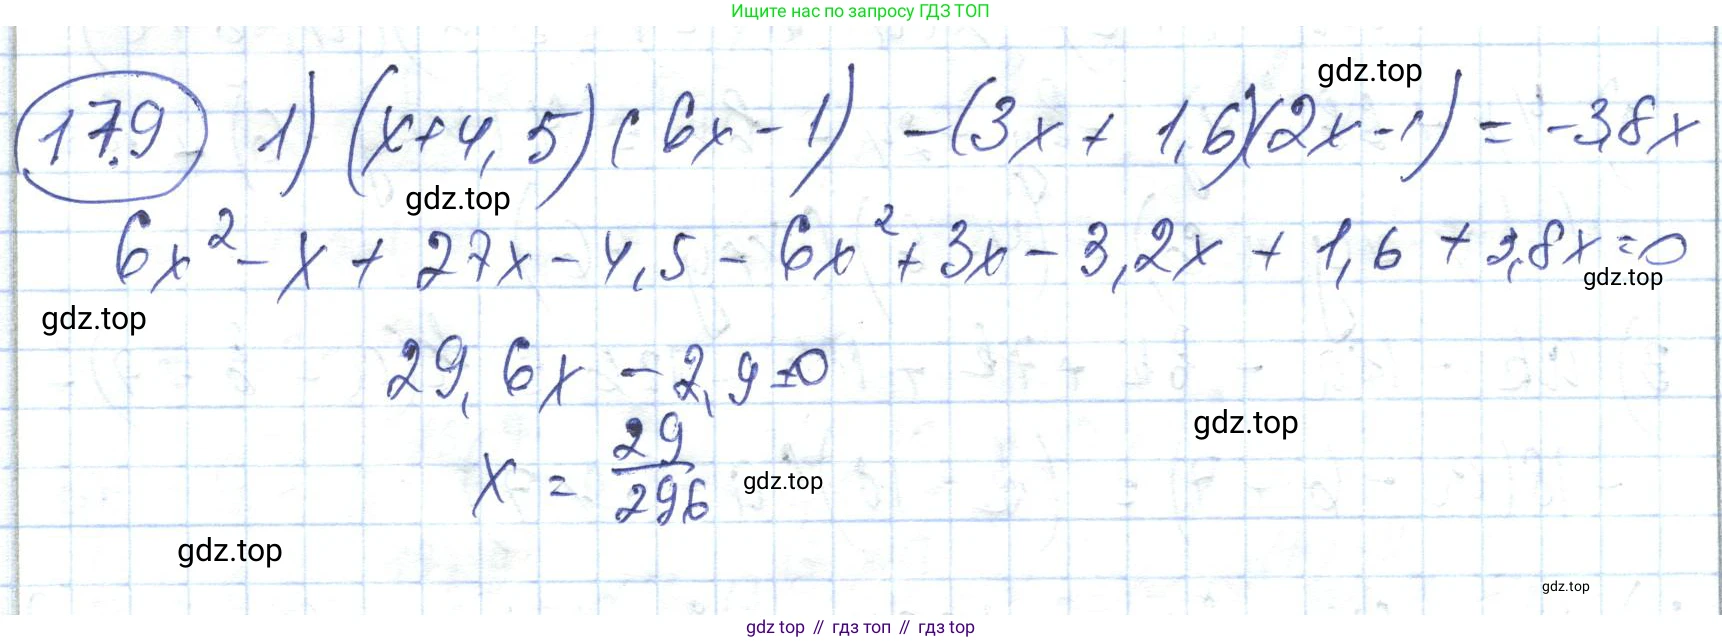 Ищите нас по запросу ГДЗ ТОП
gdz.top
17.9 1) (x+4,5)(6x-1) -(3x + 1,6)(2x-1) = -3,8x
gdz.top
6x² - x + 27x - 4,5 - 6x² + 3x - 3,2x + 1,6 + 3,8x = 0
gdz.top
gdz.top
29,6x - 2,9 = 0
gdz.top
x = 29/296
gdz.top
gdz.top
gdz.top
gdz top // гдз топ // гдз top